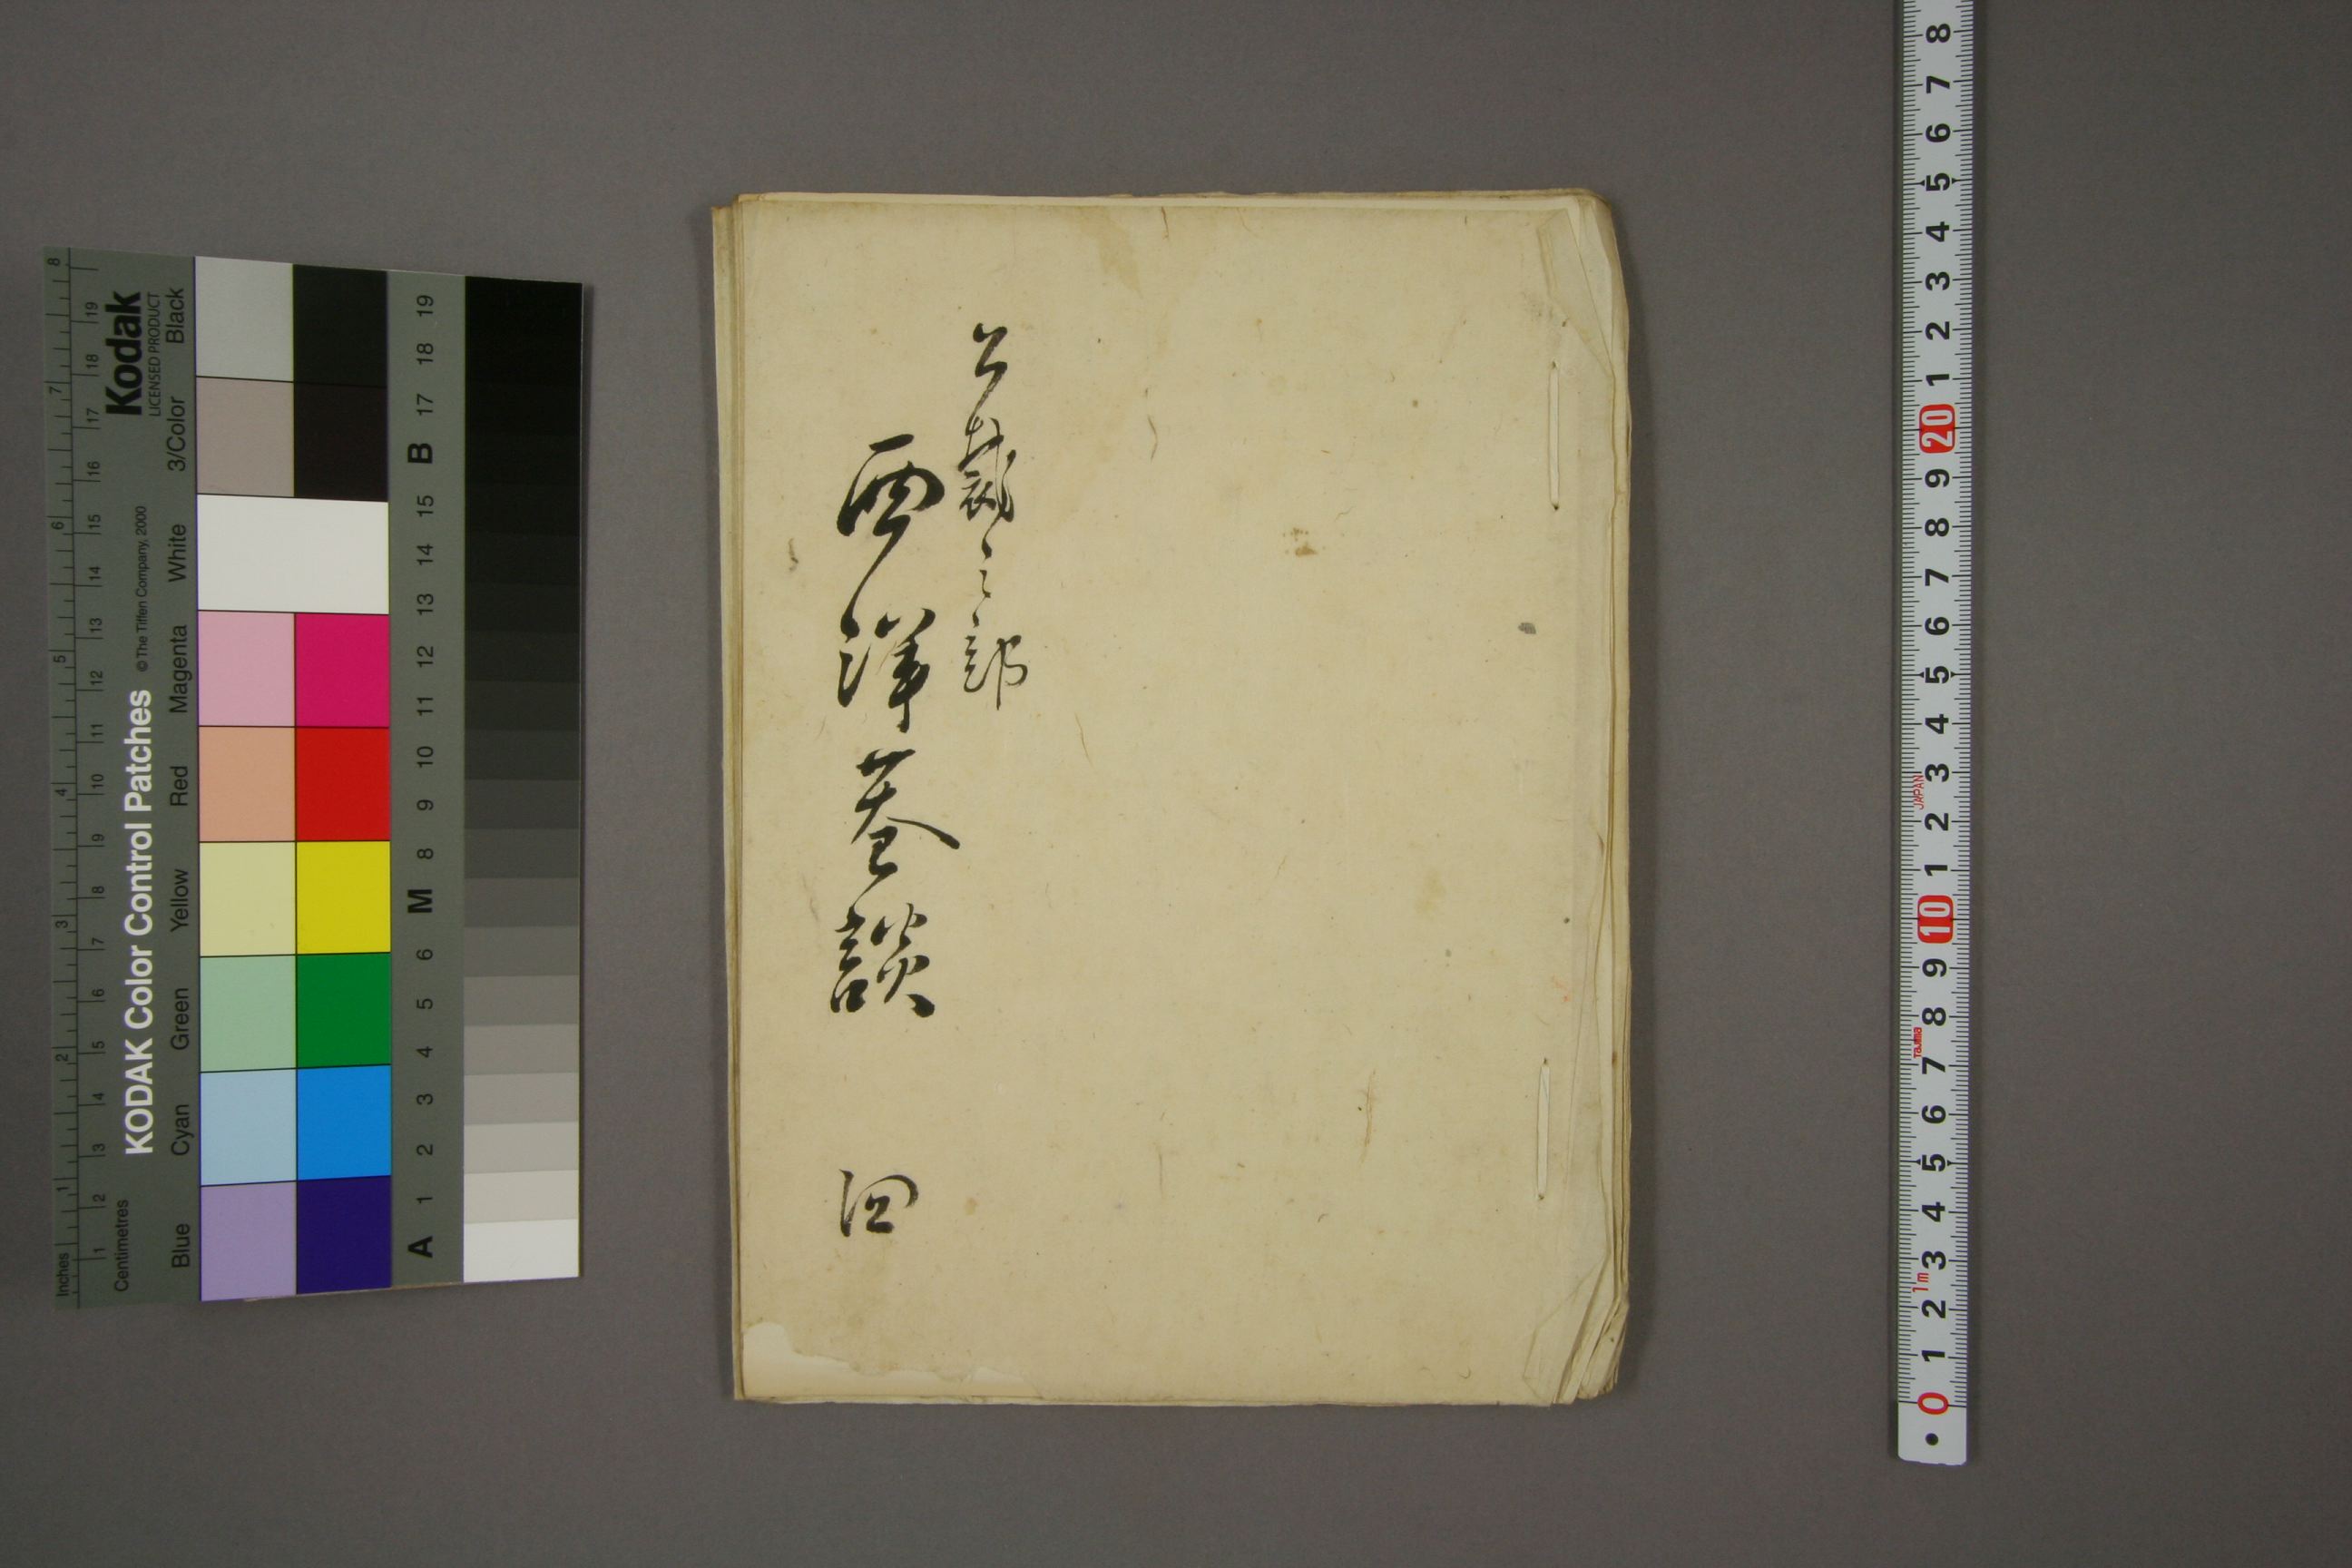 公裁之部
西洋巷談 四
Kodak
LICENSED PRODUCT
KODAK Color Control Patches
© The Tiffen Company, 2000
Blue Cyan Green Yellow Red Magenta White 3/Color Black
Inches 1 2 3 4 5 6 7 8
Centimetres 1 2 3 4 5 6 7 8 9 10 11 12 13 14 15 16 17 18 19
A 1 2 3 4 5 6 M 8 9 10 11 12 13 14 15 B 17 18 19
0 1 2 3 4 5 6 7 8 9 10 1 2 3 4 5 6 7 8 9 20 1 2 3 4 5 6 7 8
1m
Tajima
JAPAN